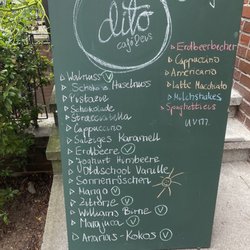 dito
café & eis
▷ Walnuss Ⓥ
▷ Schoko Haselnuss
▷ Pistazie
▷ Schokolade
▷ Stracciatella
▷ Cappuccino
▷ Salziges Karamell
▷ Erdbeere Ⓥ
▷ Joghurt Himbeere
▷ Oldschool Vanille
▷ Sonnenröschen
▷ Mango Ⓥ
▷ Zitrone Ⓥ
▷ Williams Birne Ⓥ
▷ Maracuja Ⓥ
▷ Ananas-Kokos Ⓥ
▷ Erdbeerbecher
▷ Cappuccino
▷ Americano
▷ Latte Macchiato
▷ Milchshakes
▷ Spaghettieis
uvm.